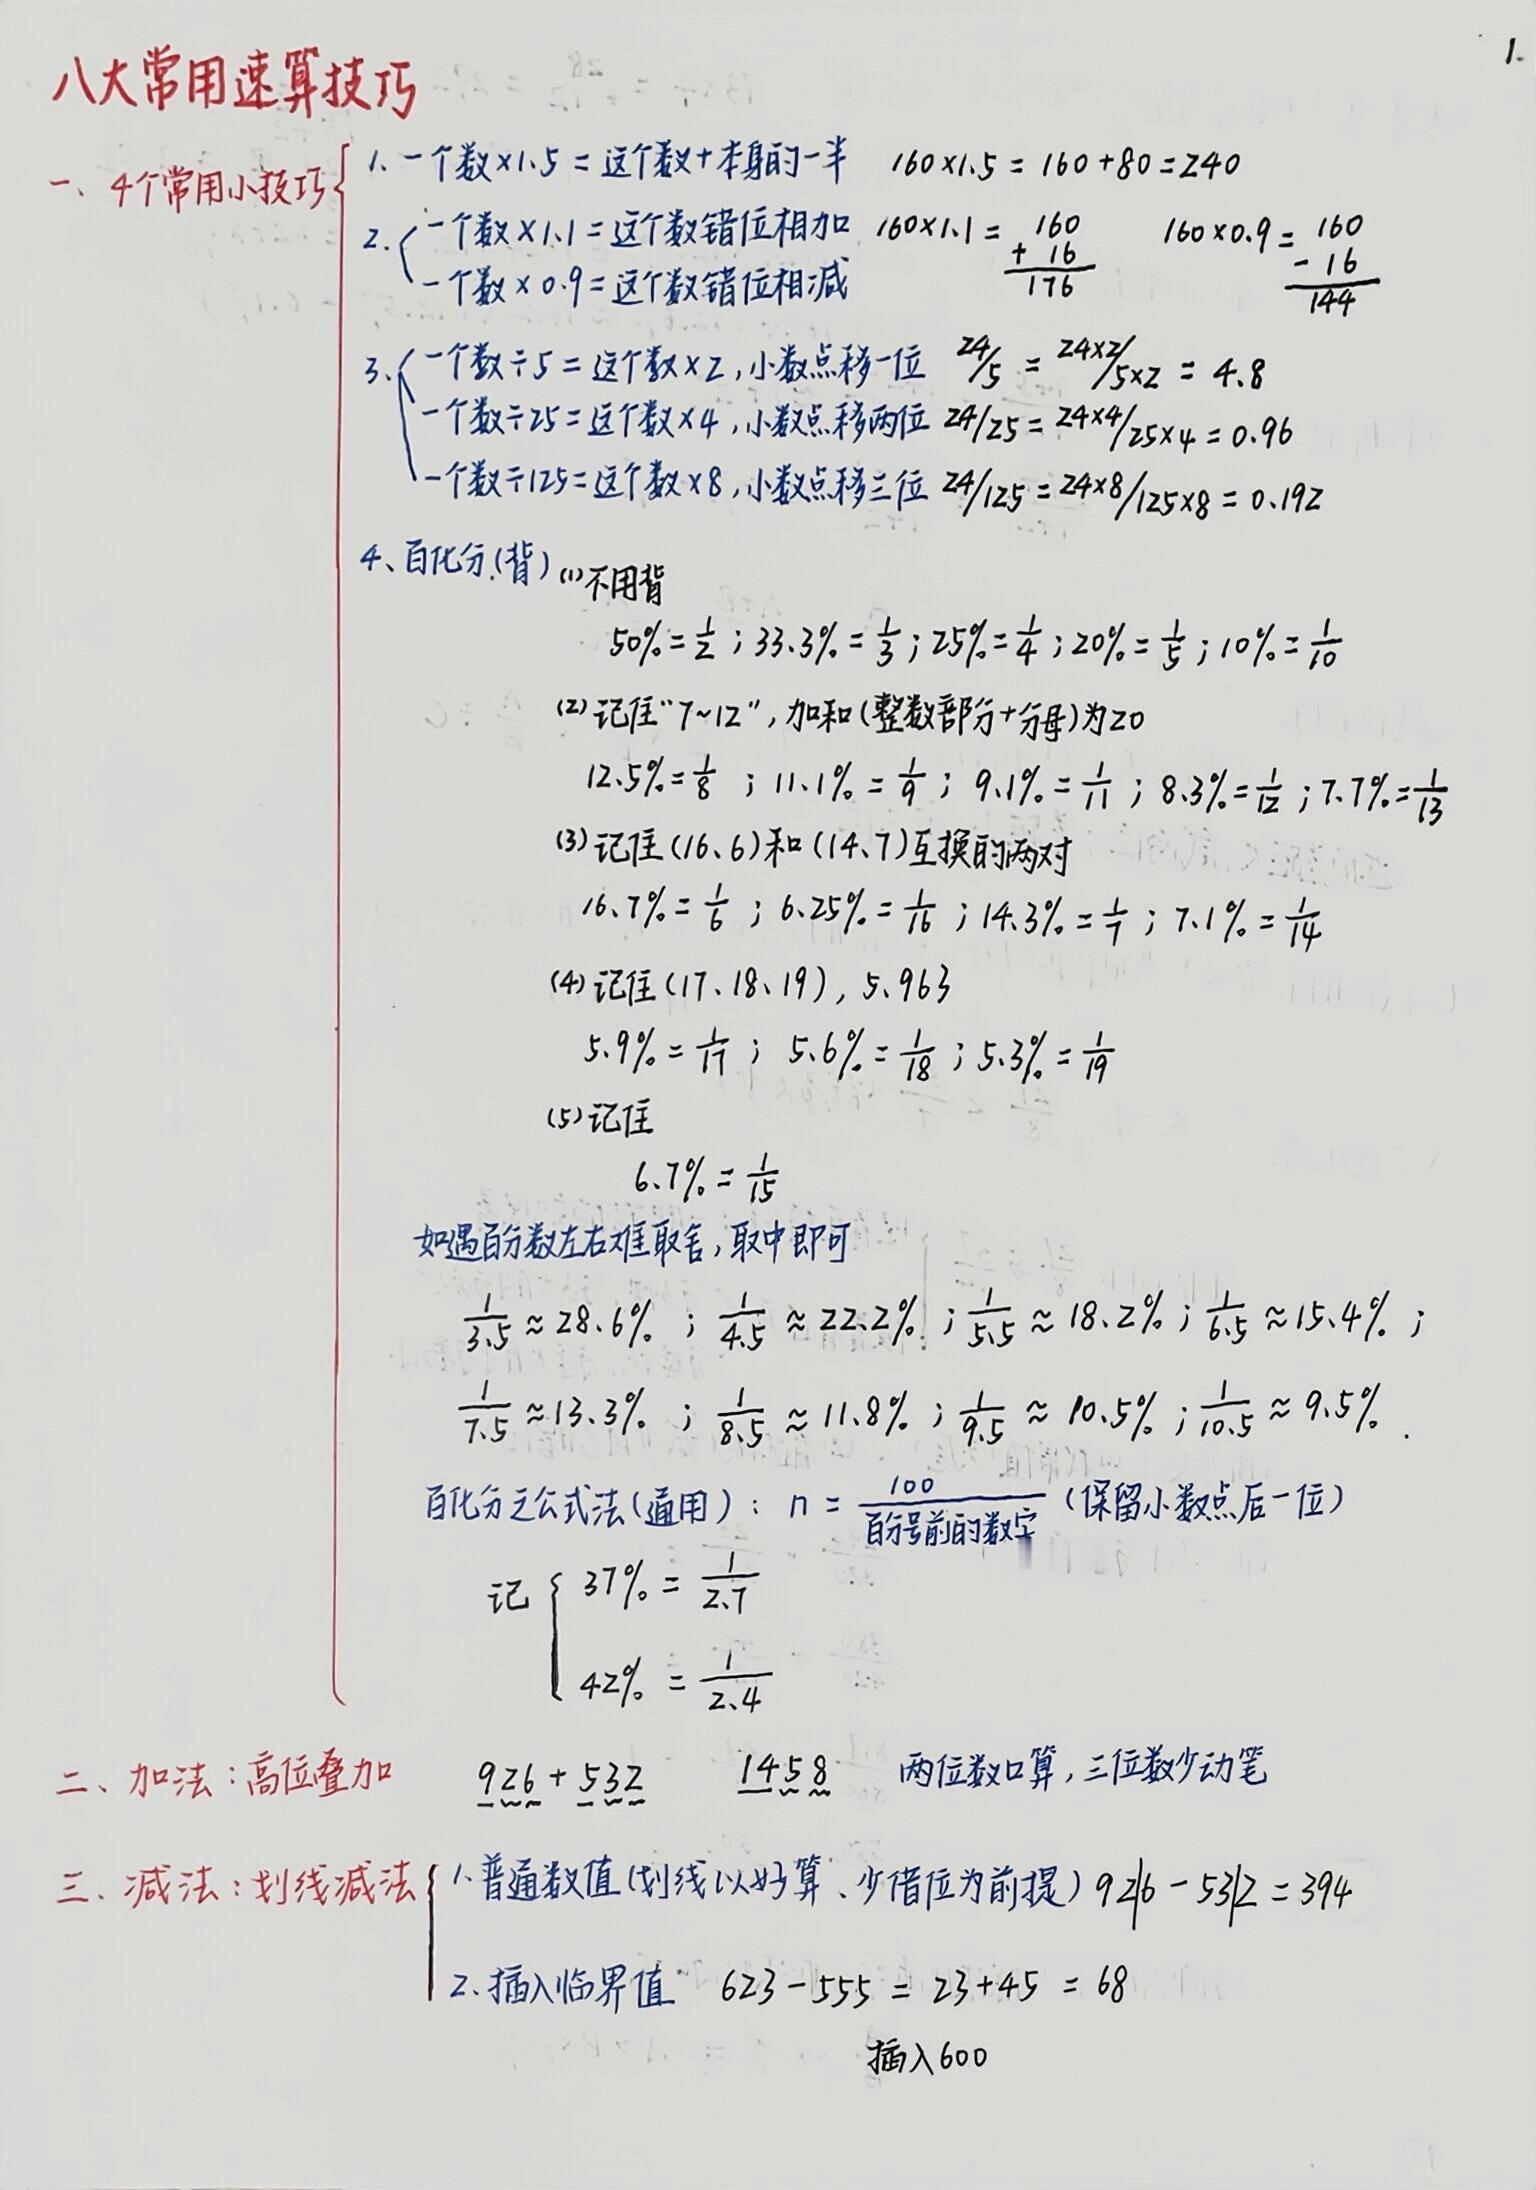 1.
八大常用速算技巧
一、4个常用小技巧
1. 一个数×1.5=这个数+本身的一半 160×1.5=160+80=240
2. 一个数×1.1=这个数错位相加 160×1.1= 160 160×0.9= 160
+ 16 - 16
一个数×0.9=这个数错位相减 176 144
3. 一个数÷5=这个数×2,小数点移一位 24/5=24×2/5×2=4.8
一个数÷25=这个数×4,小数点移两位 24/25=24×4/25×4=0.96
一个数÷125=这个数×8,小数点移三位 24/125=24×8/125×8=0.192
4、百化分.(背) (1)不用背
50%=1/2;33.3%=1/3;25%=1/4;20%=1/5;10%=1/10
(2)记住“7~12”,加和(整数部分+分母)为20
12.5%=1/8;11.1%=1/9;9.1%=1/11;8.3%=1/12;7.7%=1/13
(3)记住(16、6)和(14、7)互换的两对
16.7%=1/6;6.25%=1/16;14.3%=1/7;7.1%=1/14
(4)记住(17、18、19),5.963
5.9%=1/17;5.6%=1/18;5.3%=1/19
(5)记住
6.7%=1/15
如遇百分数左右难取舍,取中即可
1/3.5≈28.6%;1/4.5≈22.2%;1/5.5≈18.2%;1/6.5≈15.4%;
1/7.5≈13.3%;1/8.5≈11.8%;1/9.5≈10.5%;1/10.5≈9.5%.
百化分之公式法(通用):n=100/百分号前的数字(保留小数点后一位)
记 37%=1/2.7
42%=1/2.4
二、加法:高位叠加 926+532 1458 两位数口算,三位数少动笔
三、减法:划线减法 1.普通数值(划线以好算、少借位为前提)92|6-53|2=394
2.插入临界值 623-555=23+45=68
插入600